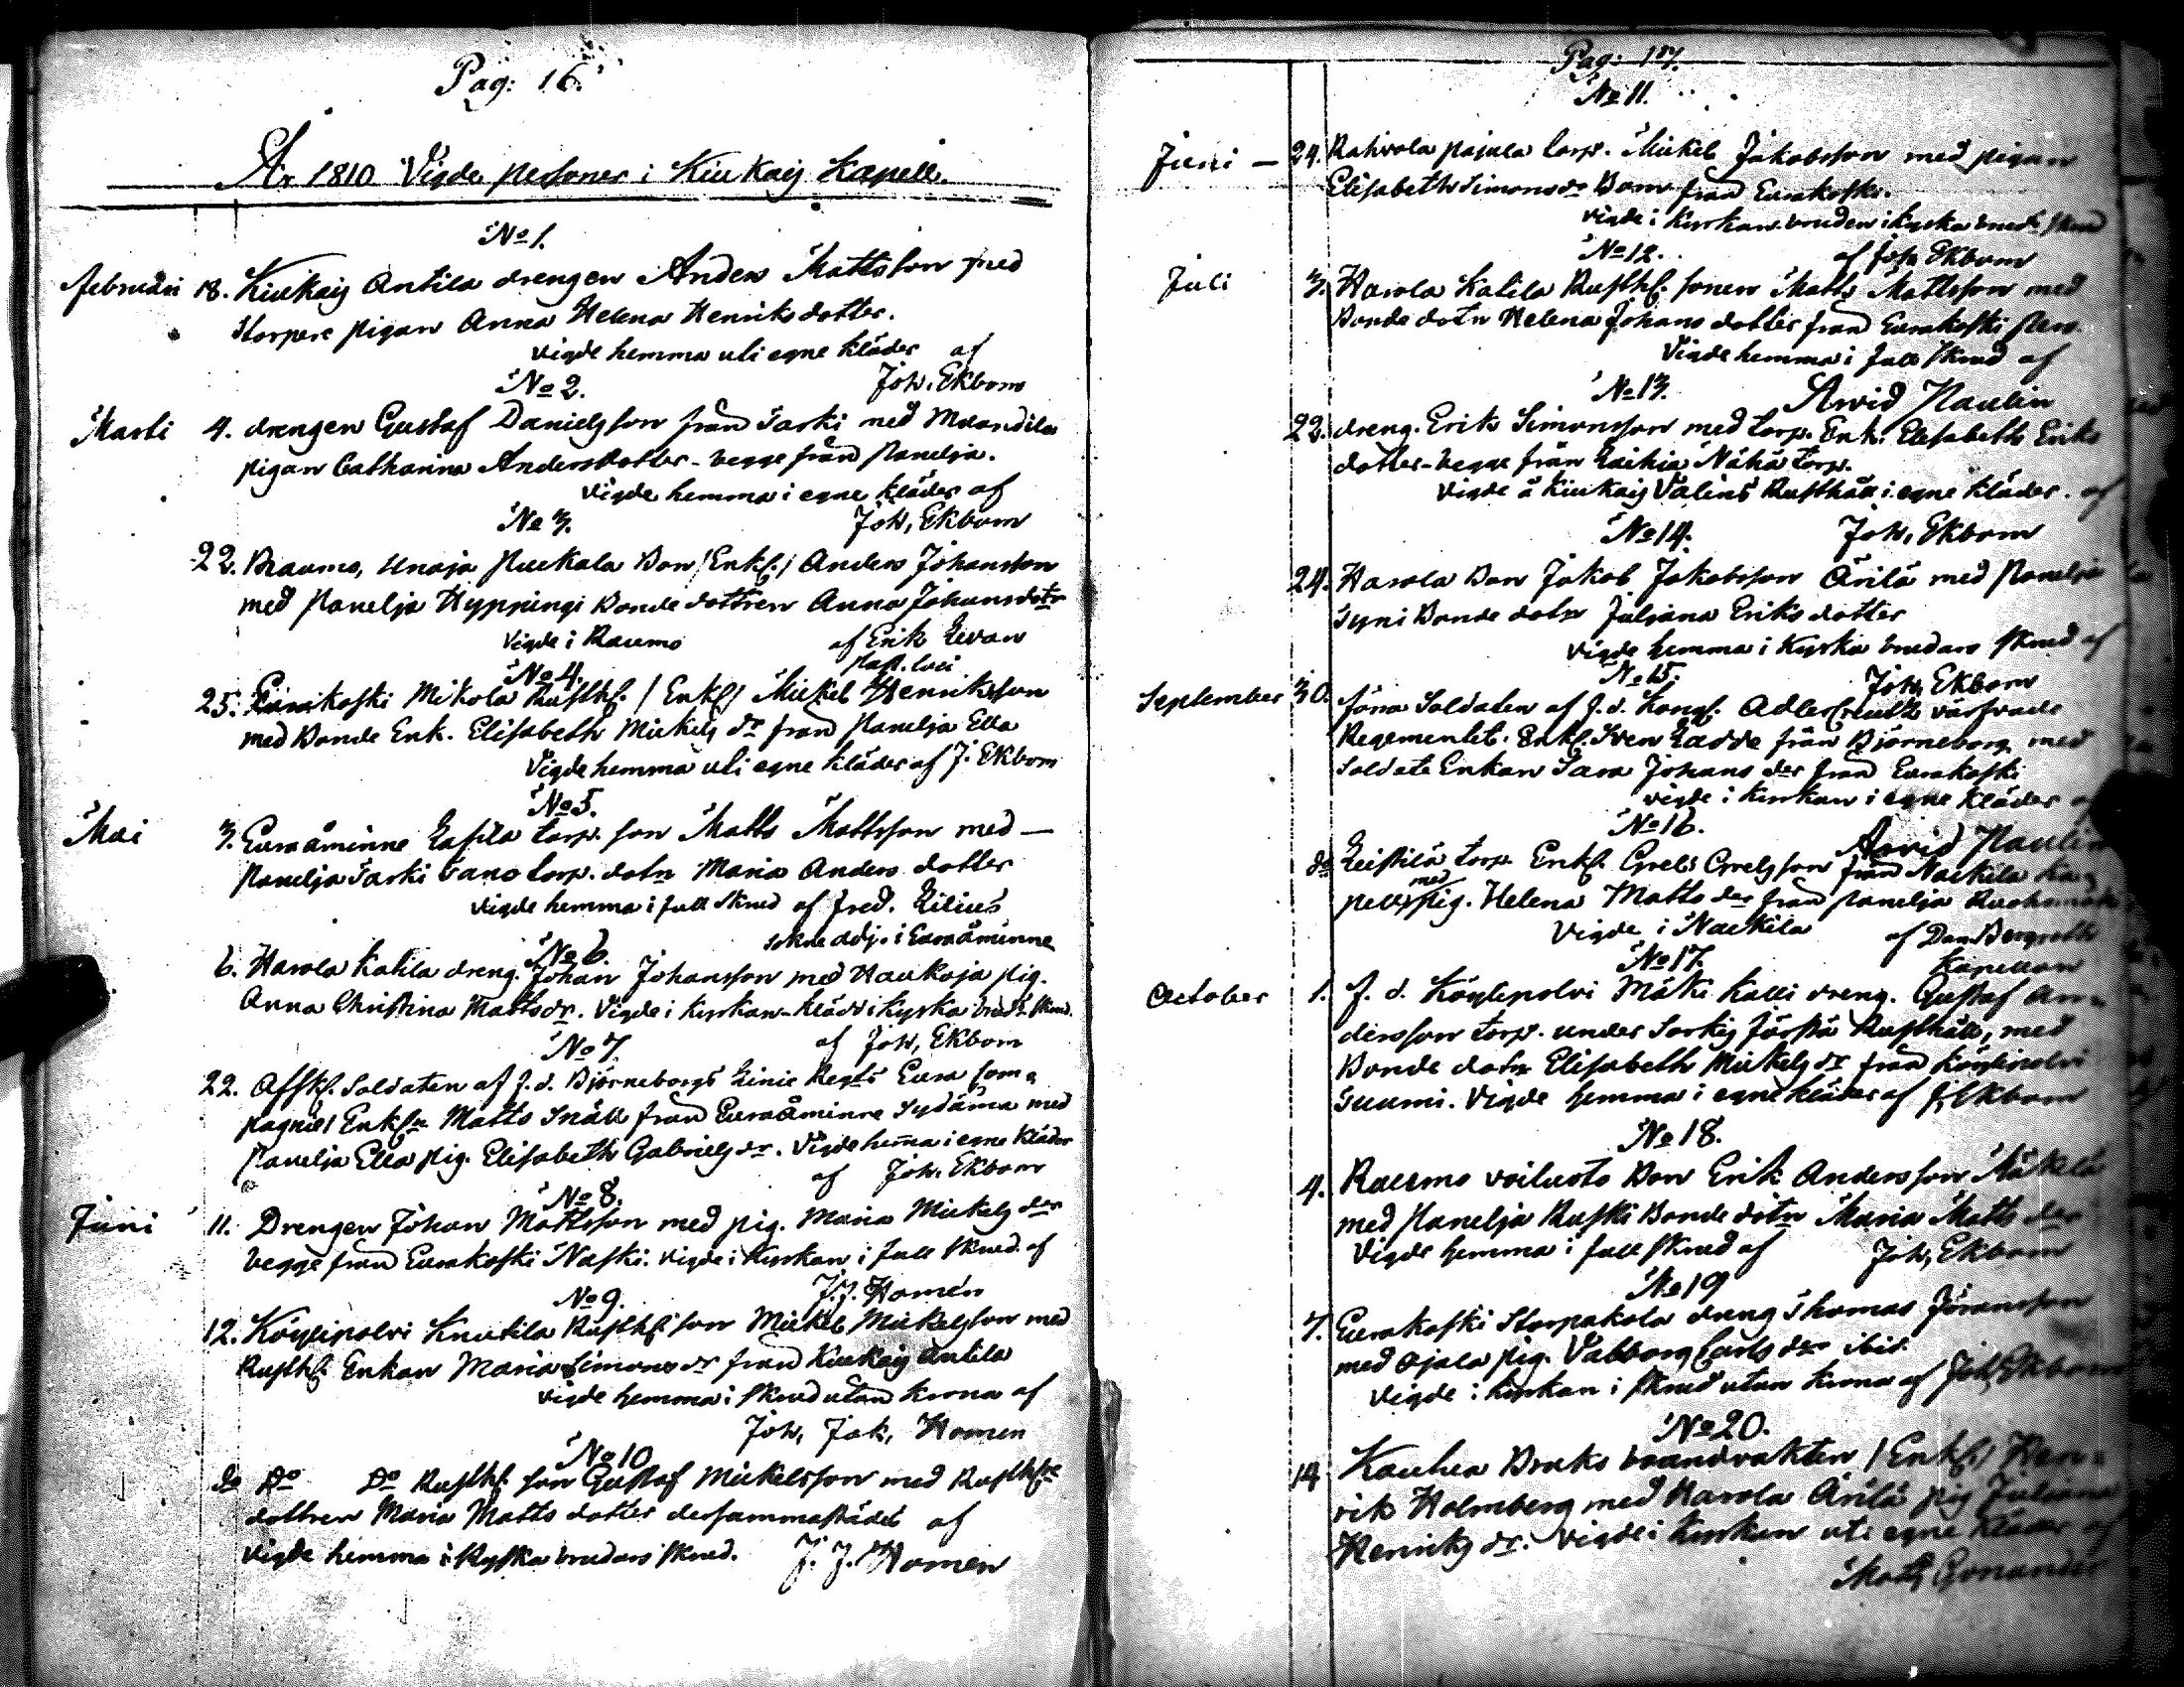 Pag: 16.
År 1810 Vigde personer i Kiukais Kapell.
No 1.
Februari 18. Kiukais Antila drengen Anders Mattsson med
Storpere pigan Anna Helena Henriksdotter.
Vigde hemma uti egne kläder af
Joh. Ekbom
No 2.
Marti 4. drengen Gustaf Danielsson från Sarki med
pigan Catharina Andersdotter - begge från Panelja.
Vigde hemma i egne kläder af
Joh. Ekbom
No 3.
22. Raumo, Unaja Puckala Bon /Enkl:/ Anders Johansson
med Panelja Hyppingi Bonde dottren Anna Johansdotr
Vigde i Raumo af Erik Levan
Past. loci
No 4.
25. Eurakoski Mikola Rusthl. /Enkl/ Mickel Henriksson
med Bonde Enk. Elisabeth Mickels dr från Panelja Ella
Vigde hemma uti egne kläder af J. Ekbom
No 5.
Mai 3. Euraåminne Lapila torp. son Matts Mattsson med —
Panelja Sarki torp. dotn Maria Anders dotter
Vigde hemma i full skrud af Fred. Lilius
Sokne adj. i Euraåminne
No 6.
6. Harola Katila dreng. Johan Johansson med Haukoja pig.
Anna Christina Mattsdr. Vigde i kyrkan klädd i kyrko brud. skrud.
af Joh. Ekbom
No 7.
22. Afsk. Soldaten af f. d. Björneborgs Linie Regts Eura Com=
pagnie / Enkl:n Matts Snäll från Euraåminne Sydänma med
Panelja Ella pig. Elisabeth Gabriels dr. Vigde hemma i egne kläder
af Joh. Ekbom
No 8.
Juni 11. Drengen Johan Mattsson med pig. Maria Mickels der
begge från Eurakoski Naski. Vigde i kyrkan i full skrud af
J. J. Homén
No 9.
12. Köylipolvi Knutila Rusthl. son Mickel Mickelsson med
Rusthl. Enkan Maria Simons dr från Kiukais Antila
Vigde hemma i skrud utan krona af
Joh. Jak. Homen
No 10
do Do Do Rusthl. son Gustaf Mickelsson med Rusthl.
dottren Maria Matts dotter dersammastädes af
Vigde hemma i kyrko brudars skrud. J. J. Homen
Pag: 17.
No 11.
Juni — 24. Rahvola pajula torp. Mickel Jakobsson med pigan
Elisabeth Simonsdr Bom från Eurakoski.
Vigde i kyrkan bruden i kyrko bruds skrud
No 12. af Joh Ekbom
Juli 3. Harola Katila Rusthl. sonen Matts Mattsson med
Bonde dotn Helena Johans dotter från Eurakoski
Vigde hemma i full skrud af
No 13. Arvid Paulin
22. dreng. Erik Simonsson med torp. Enk. Elisabeth Eriks
dotter - begge från Laihia Nähä torp.
Vigde å Kiukais Välins Rusthåll i egne kläder. af
No 14. Joh. Ekbom
24. Harola Bon Jakob Jakobsson Ärilä med Panelja
Syni Bonde dotr Juliana Eriks dotter
Vigde hemma i kyrko brudars skrud af
No 15. Joh. Ekbom
September 30. förra Soldaten af f. d. Kongl. Adlercreutz värfvade
Regementet. Enkl. Sven Ladde från Björneborg med
Soldate Enkan Sara Johans der från Eurakoski
vigde i kyrkan i egne kläder af
No 16. Arvid Paulin
do Leistilä torp. Enkl. Grels Grelsson från Nackila Ka=
pell med pig. Helena Matts der från Panelja
Vigde i Nackila af Dan Bergroth
Kapellan
No 17.
October 1. f. d. Köylipolvi Mäki Kalli dreng. Gustaf An=
dersson torp. under Sarkis första Rusthåll, med
Bonde dotn Elisabeth Mickels dr från Köylipolvi
Suumi. Vigde hemma i egne kläder af J. Ekbom
No 18.
4. Raumo voiluoto Bon Erik Andersson Mäkelä
med Panelja Ruski Bonde dotn Maria Matts der
Vigde hemma i full skrud af Joh, Ekbom
No 19
7. Eurakoski Storpakola dreng Thomas Göransson
med Ojala pig. Valborg Carls der ibid.
Vigde i kyrkan i skrud utan krona af Joh, Ekbom
No 20.
14 Kauttua Bruks brandvakten / Enkl:/ Hen=
rik Holmberg med Harola Ärilä pig Juliana
Henriks dr. Vigde i kyrkan uti egne kläder af
Math Gonander